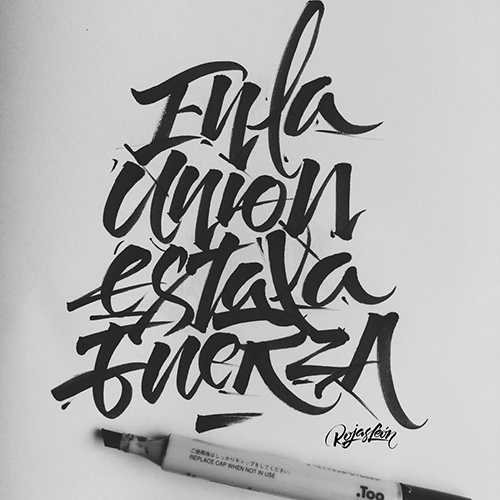 En la
union
esta la
FuerzA
RojasLeón
ご使用後はしっかりキャップをしてください。
REPLACE CAP WHEN NOT IN USE
.Too